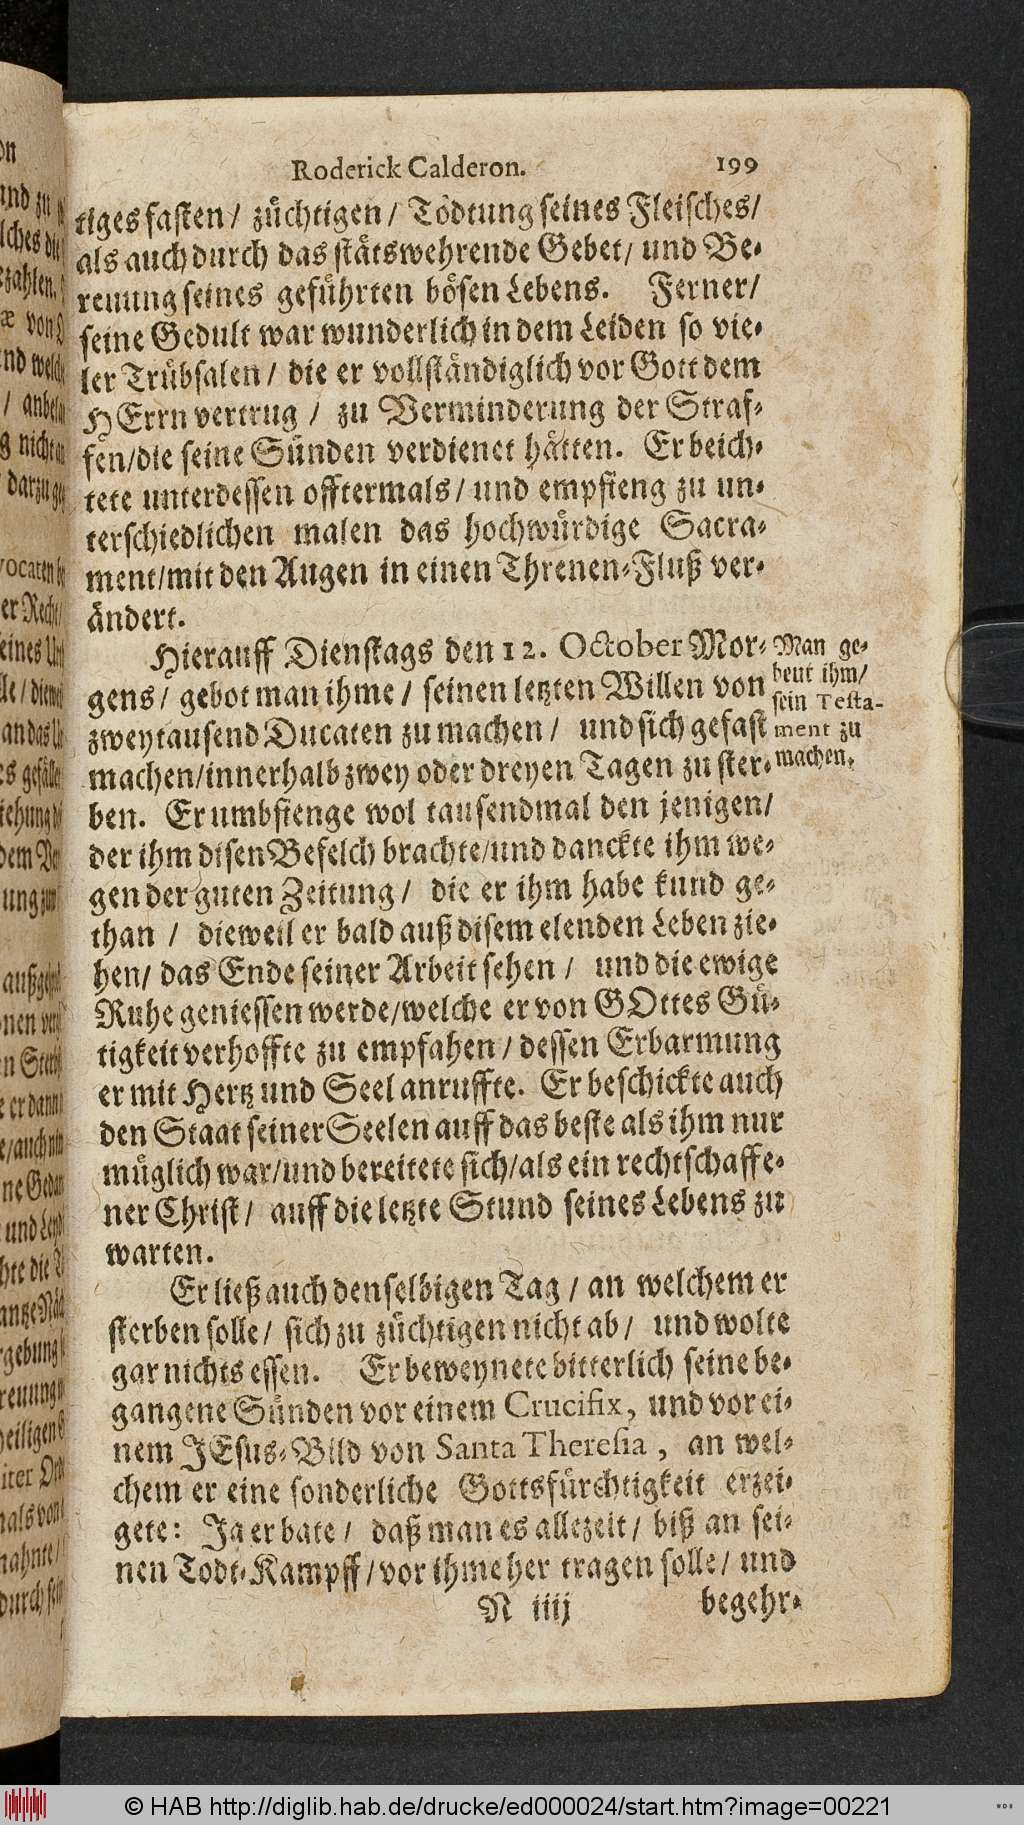 Roderick Calderon. 199
tiges fasten/ züchtigen/ Tödtung seines Fleisches/
als auch durch das stätswehrende Gebet/ und Be-
reuung seines geführten bösen Lebens. Ferner/
seine Gedult war wunderlich in dem Leiden so vie-
ler Trübsalen/ die er vollständiglich vor Gott dem
HErrn vertrug / zu Verminderung der Straf-
fen/die seine Sünden verdienet hätten. Er beich-
tete unterdessen offtermals/ und empfieng zu un-
terschiedlichen malen das hochwürdige Sacra-
ment/mit den Augen in einen Threnen-Fluß ver-
ändert.
Hierauff Dienstags den 12. October Mor-
gens/ gebot man ihme/ seinen letzten Willen von
zweytausend Ducaten zu machen/ und sich gefast
machen/innerhalb zwey oder dreyen Tagen zu ster-
ben. Er umbfienge wol tausendmal den jenigen/
der ihm disen Befelch brachte/und danckte ihm we-
gen der guten Zeitung/ die er ihm habe kund ge-
than / dieweil er bald auß disem elenden Leben zie-
hen/ das Ende seiner Arbeit sehen/ und die ewige
Ruhe geniessen werde/welche er von GOttes Gü-
tigkeit verhoffte zu empfahen/ dessen Erbarmung
er mit Hertz und Seel anruffte. Er beschickte auch
den Staat seiner Seelen auff das beste als ihm nur
müglich war/und bereitete sich/als ein rechtschaffe-
ner Christ/ auff die letzte Stund seines Lebens zu
warten.
Man ge-
beut ihm/
sein Testa-
ment zu
machen.
Er ließ auch denselbigen Tag / an welchem er
sterben solle/ sich zu züchtigen nicht ab/ und wolte
gar nichts essen. Er beweynete bitterlich seine be-
gangene Sünden vor einem Crucifix, und vor ei-
nem JEsus-Bild von Santa Theresia, an wel-
chem er eine sonderliche Gottsfürchtigkeit erzei-
gete: Ja er bate/ daß man es allezeit/ biß an sei-
nen Todt-Kampff/vor ihme her tragen solle/ und
N iiij begehr-
© HAB http://diglib.hab.de/drucke/ed000024/start.htm?image=00221